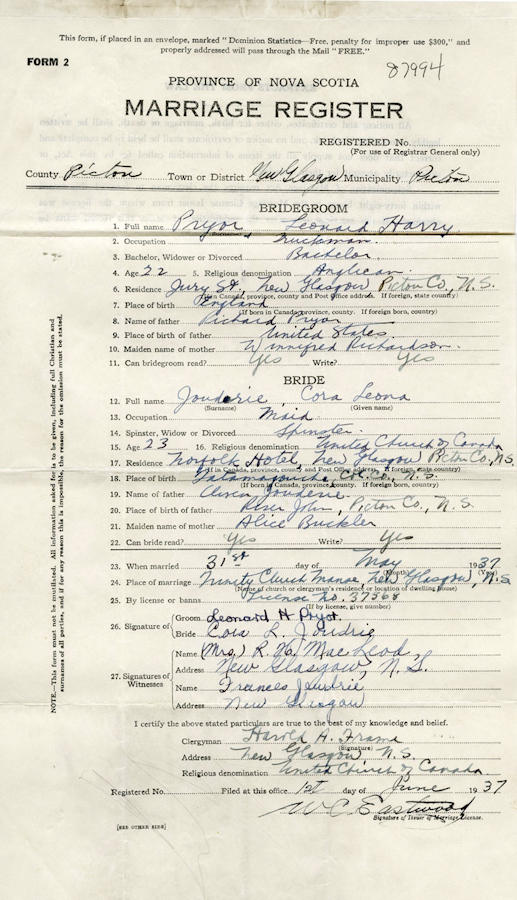 This form, if placed in an envelope, marked "Dominion Statistics—Free, penalty for improper use $300," and
properly addressed will pass through the Mail "FREE."
FORM 2
87994
PROVINCE OF NOVA SCOTIA
MARRIAGE REGISTER
REGISTERED No.
(For use of Registrar General only)
County Pictou Town or District New Glasgow Municipality Pictou
BRIDEGROOM
1. Full name Pryor Leonard Harry
(Surname)
2. Occupation Truckman.
3. Bachelor, Widower or Divorced Bachelor.
4. Age 22 5. Religious denomination Anglican.
6. Residence Jury St, New Glasgow Pictou Co., N.S.
(If in Canada, province, county and Post Office address. If foreign, state country)
7. Place of birth England
(If born in Canada, province, county. If foreign born, country)
8. Name of father Richard Pryor
9. Place of birth of father United States
10. Maiden name of mother Winnifred Richardson.
11. Can bridegroom read? Yes Write? Yes
BRIDE
12. Full name Jouderie, Cora Leona
(Surname) (Given name)
13. Occupation Maid
14. Spinster, Widow or Divorced Spinster.
15. Age 23 16. Religious denomination United Church of Canada
17. Residence Norfolk Hotel, New Glasgow Pictou Co., N.S.
(If in Canada, province, county and Post Office address. If foreign, state country)
18. Place of birth Tatamagouche, Col. Co., N.S.
(If born in Canada, province, county. If foreign born, country)
19. Name of father Jouderie.
20. Place of birth of father River John, Pictou Co., N.S.
21. Maiden name of mother Alice Buckler
22. Can bride read? Yes Write? Yes
23. When married 31st day of May 1937
24. Place of marriage Trinity Church Manse, New Glasgow, N.S.
(Name of church or clergyman's residence or location of dwelling house)
25. By license or banns License No. 37568
(If by license, give number)
26. Signature of
Groom Leonard H Pryor.
Bride Cora L. Joudrie
27. Signatures of
Witnesses
Name (Mrs.) R. MacLeod,
Address New Glasgow, N.S.
Name Frances Joudrie
Address New Glasgow
I certify the above stated particulars are true to the best of my knowledge and belief.
Clergyman Harold A. Frame
(Signature)
Address New Glasgow N.S.
Religious denomination United Church of Canada
Registered No. Filed at this office 1st day of June 1937
W C Eastwood
Signature of Issuer of Marriage License.
[SEE OTHER SIDE]
NOTE.—This form must not be mutilated. All information asked for is to be given, including full Christian and
surnames of all parties, and if for any reason this is impossible, the reason for the omission must be stated.